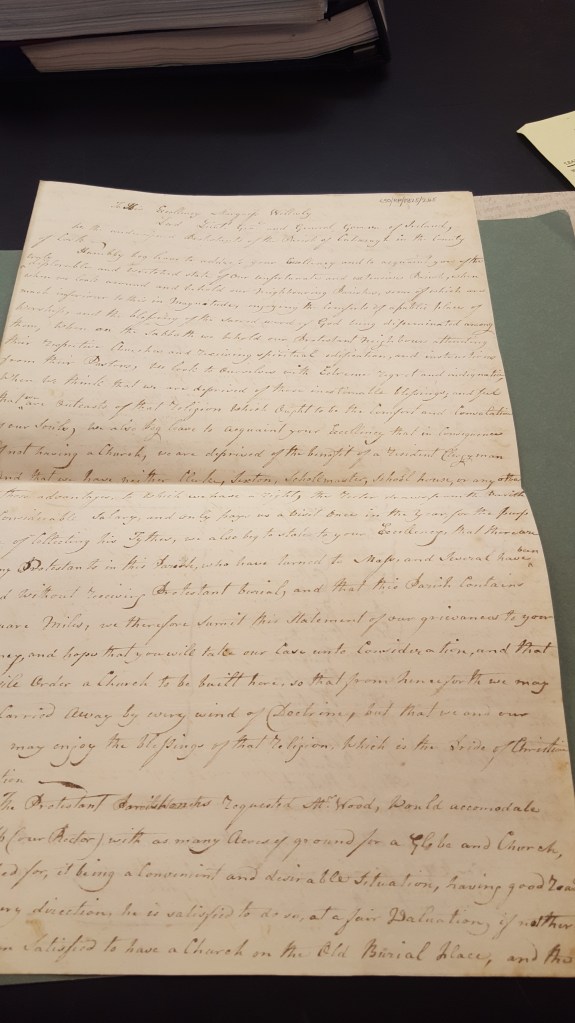 To His Excellency Marquis Wellesly
Lord Lieut Genl and General Governor of Ireland,
We the undersigned Protestants of the Parish of in the County
of Cork
Humbly beg leave to address your Excellency and to acquaint you of the
lamentable and destitute state of our unfortunate and extensive Parish, when
when we look around and behold our Neighbouring Parishes, some of which are
much inferiour to this in Magnitude, enjoying the comforts of a public place of
Worship, and the blessings of the sacred word of God being disseminated among
them, when on the Sabbath we behold our Protestant Neighbours attending
their respective Churches and receiving spiritual edification, and instructions
from their Pastors, we look to ourselves with Extreme regret and indignation,
when we think that we are deprived of these inestimable blessings, and feel
that we are Outcasts of that Religion which Ought to be the Comfort and Consolation
our Souls, we also beg leave to acquaint your Excellency that in Consequence
of not having a Church, we are deprived of the benefit of a Resident Clergyman
and that we have neither Clerk, Sexton, Schoolmaster, School house, or any other
the advantages, to which we have a right, the Rector draws from the Parish
Considerable Salary, and only pays us a Visit once in the Year for the purpose
of Collecting his Tythes, we also beg to state to your Excellency, that there are
ny Protestants in this Parish, who have turned to Mass, and Several have been
d without receiving Protestant burial, and that this Parish Contains
uare Miles, we therefore submit this Statement of our grievances to your
ncy, and hope that you will take our Case into Consideration, and that
ill Order a Church to be built here, so that from henceforth we may
Carried Away by every wind of Doctrine, but that we and our
may enjoy the blessings of that Religion, which is the Pride of Christian
tion
The Protestant Parishioners requested Mr Wood, would accomodate
(our Rector) with as many Acres of ground for a Glebe and Church,
ed for, it being a Convenient and desirable Situation, having good Roads
ery direction. he is satisfied to do so, at a fair Valuation, if neither
n Satisfied to have a Church on the Old Burial Place, and the